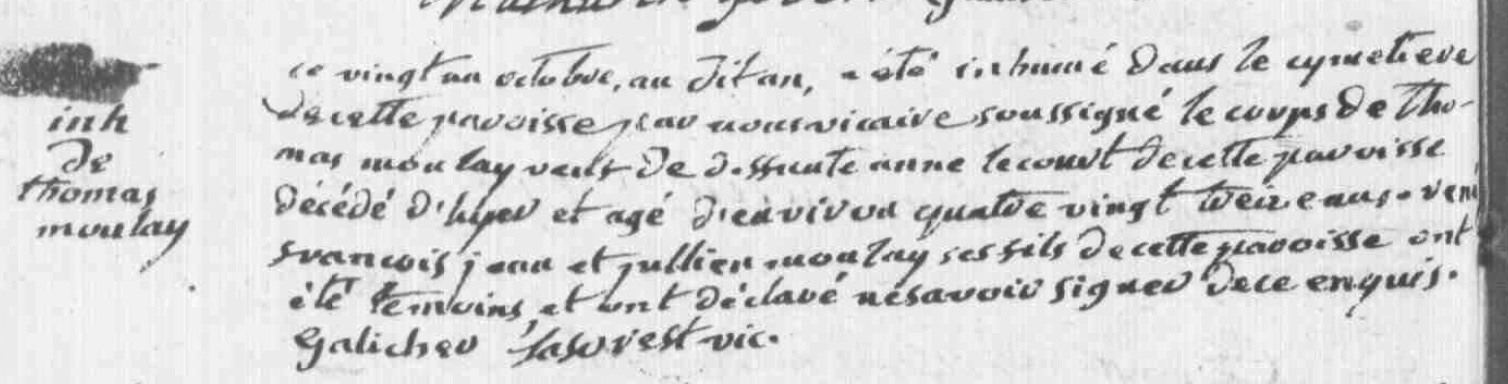 inh
de
thomas
moulay
ce vingt un octobre, au dit an, a été inhumé dans le cymetiere
de cette paroisse par nous vicaire soussigné le corps de tho-
mas moulay veuf de deffunte anne lecourt de cette paroisse
décédé d'hyer et agé d'environ quatre vingt treize ans. rené
francois jean et jullien moulay ses fils de cette paroisse ont
été temoins, et ont déclaré ne savoir signer de ce enquis.
Galicher vic.